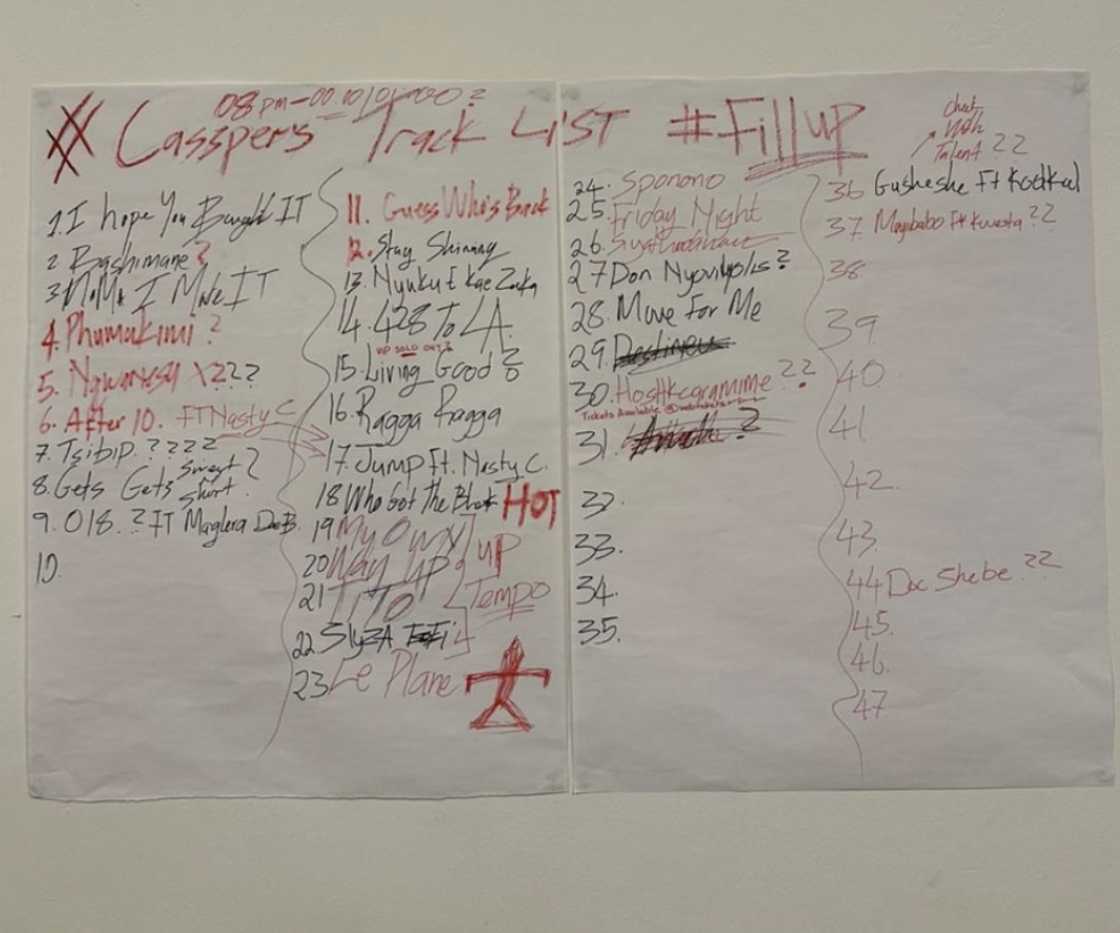 08pm-00.
# Casspers Track LIST #Fillup
1. I hope You Bought IT
2 Bashimane ?
3. I Made IT
4. Phumakimi ?
5. Ngwanesu
6. After 10. FT Nasty C
7. Tsibip. ????
8. Gets Gets Sweet Short ?
9. 018. ? FT Maglera Doe B
10.
11. Guess Who's Back
12. Stay Shinning
13. Nyuku
14. 428 To LA.
VIP SOLD OUT
15. Living Good ?
16. Ragga Ragga
17. Jump Ft. Nasty C.
18 Who Got The Block HOT
19 My Own
20 Way UP
UP
21 TITO
Tempo
22
23 Le Plane
24. Sponono
25. Friday Night
26.
27 Don
?
28. Move For Me
29.
30. ??
Tickets Available @
31. ?
32.
33.
34.
35.
Check
With
Talent ??
36 Gusheshe Ft
37. Ft Kwesta ??
38
39
40
41
42.
43.
44 Doc Shebe ??
45.
46.
47